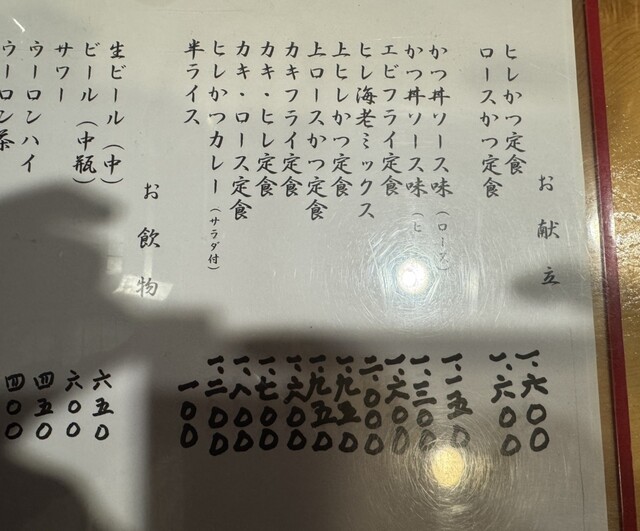 お献立
ヒレかつ定食 一、六〇〇
ロースかつ定食 一、六〇〇
かつ丼ソース味（ロース） 一、一五〇
かつ丼ソース味（ヒ 一、三〇〇
エビフライ定食 一、六〇〇
ヒレ海老ミックス 二、〇〇〇
上ヒレかつ定食 一、九五〇
上ロースかつ定食 一、九五〇
カキフライ定食 一、六〇〇
カキ・ヒレ定食 一、七〇〇
カキ・ロース定食 一、八〇〇
ヒレかつカレー（サラダ付） 一、二〇〇
半ライス 一〇〇
お飲物
生ビール（中） 六五〇
ビール（中瓶） 六〇〇
サワー 四五〇
ウーロンハイ 四〇〇
ウーロン茶